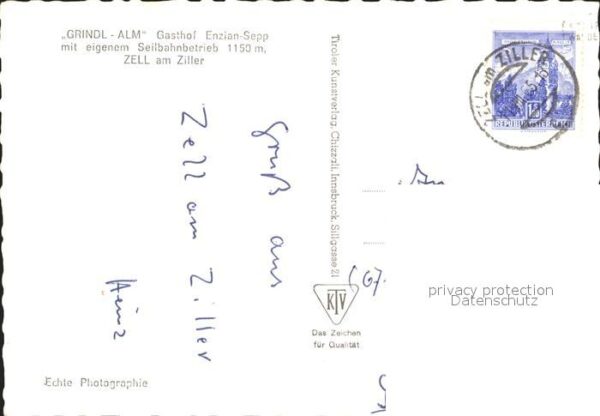 „GRINDL - ALM" Gasthof Enzian-Sepp
mit eigenem Seilbahnbetrieb 1150 m,
ZELL am Ziller
Gruß aus
Zell am Ziller
Heinz
Tiroler Kunstverlag Chizzali, Innsbruck, Sillgasse 21
KTV
Das Zeichen
für Qualität
Echte Photographie
ZELL am ZILLER
REPUBLIK
privacy protection
Datenschutz